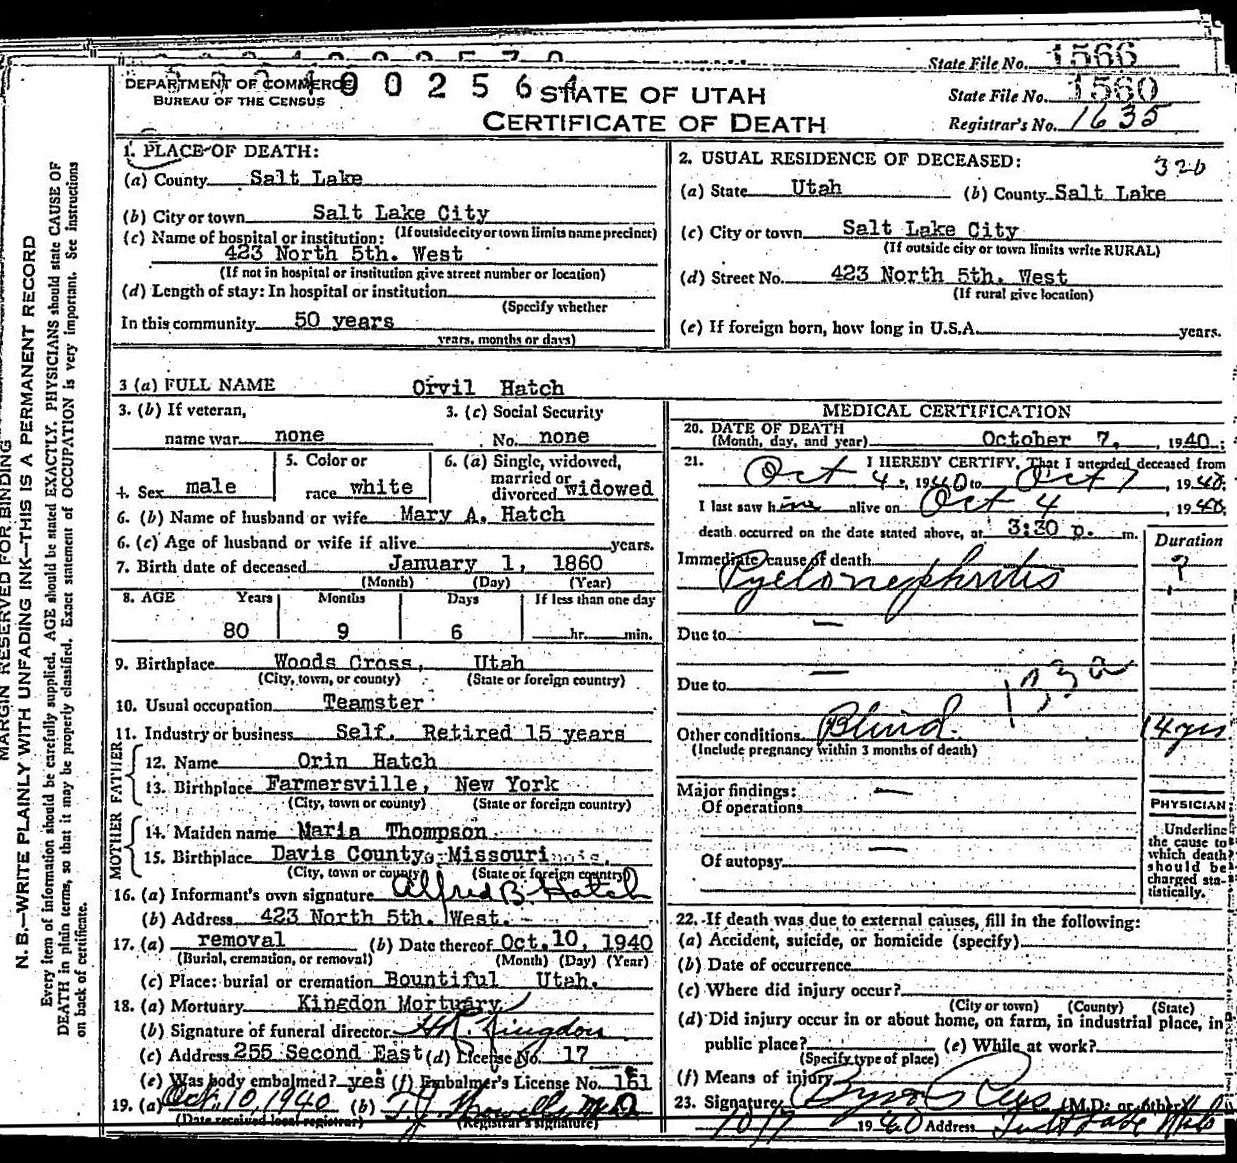 State File No. 1566
DEPARTMENT OF COMMERCE
BUREAU OF THE CENSUS
STATE OF UTAH
CERTIFICATE OF DEATH
State File No. 1560
Registrar's No. 1635
1. PLACE OF DEATH:
(a) County Salt Lake
(b) City or town Salt Lake City
(If outside city or town limits name precinct)
(c) Name of hospital or institution:
423 North 5th. West
(If not in hospital or institution give street number or location)
(d) Length of stay: In hospital or institution
(Specify whether
In this community 50 years
years, months or days)
2. USUAL RESIDENCE OF DECEASED: 320
(a) State Utah (b) County Salt Lake
(c) City or town Salt Lake City
(If outside city or town limits write RURAL)
(d) Street No. 423 North 5th. West
(If rural give location)
(e) If foreign born, how long in U.S.A. years.
3 (a) FULL NAME Orvil Hatch
3. (b) If veteran,
name war none
3. (c) Social Security
No. none
4. Sex male
5. Color or
race white
6. (a) Single, widowed,
married or
divorced widowed
6. (b) Name of husband or wife Mary A. Hatch
6. (c) Age of husband or wife if alive years.
7. Birth date of deceased January 1, 1860
(Month) (Day) (Year)
8. AGE Years Months Days If less than one day
80 9 6 hr. min.
9. Birthplace Woods Cross, Utah
(City, town, or county) (State or foreign country)
10. Usual occupation Teamster
11. Industry or business Self. Retired 15 years
FATHER
12. Name Orin Hatch
13. Birthplace Farmersville, New York
(City, town or county) (State or foreign country)
MOTHER
14. Maiden name Maria Thompson
15. Birthplace Davis County, Missouri
(City, town or county) (State or foreign country)
16. (a) Informant's own signature Alfred B. Hatch
(b) Address 423 North 5th. West.
17. (a) removal (b) Date thereof Oct. 10, 1940
(Burial, cremation, or removal) (Month) (Day) (Year)
(c) Place: burial or cremation Bountiful Utah.
18. (a) Mortuary Kingdon Mortuary
(b) Signature of funeral director Kingdon
(c) Address 255 Second East (d) License No. 17
(e) Was body embalmed? yes (f) Embalmer's License No. 161
19. (a) Oct. 10, 1940 (b)
(Date received local registrar) (Registrar's signature)
MEDICAL CERTIFICATION
20. DATE OF DEATH
(Month, day, and year) October 7, 1940;
21. I HEREBY CERTIFY, That I attended deceased from
Oct 4, 1940 to Oct 7 1940;
I last saw him alive on Oct 4, 1940;
death occurred on the date stated above, at 3:30 p. m.
Duration
Immediate cause of death ?
Pyelonephritis
Due to —
Due to —
Other conditions Blind. 14 yrs
(Include pregnancy within 3 months of death)
Major findings:
Of operations —
Of autopsy —
PHYSICIAN
Underline
the cause to
which death
should be
charged sta-
tistically.
22. If death was due to external causes, fill in the following:
(a) Accident, suicide, or homicide (specify)
(b) Date of occurrence
(c) Where did injury occur?
(City or town) (County) (State)
(d) Did injury occur in or about home, on farm, in industrial place, in
public place? (e) While at work?
(Specify type of place)
(f) Means of injury
23. Signature (M.D. or other)
10/7 1940 Address
MARGIN RESERVED FOR BINDING
N. B.—WRITE PLAINLY WITH UNFADING INK—THIS IS A PERMANENT RECORD
Every item of information should be carefully supplied. AGE should be stated EXACTLY. PHYSICIANS should state CAUSE OF
DEATH in plain terms, so that it may be properly classified. Exact statement of OCCUPATION is very important. See instructions
on back of certificate.